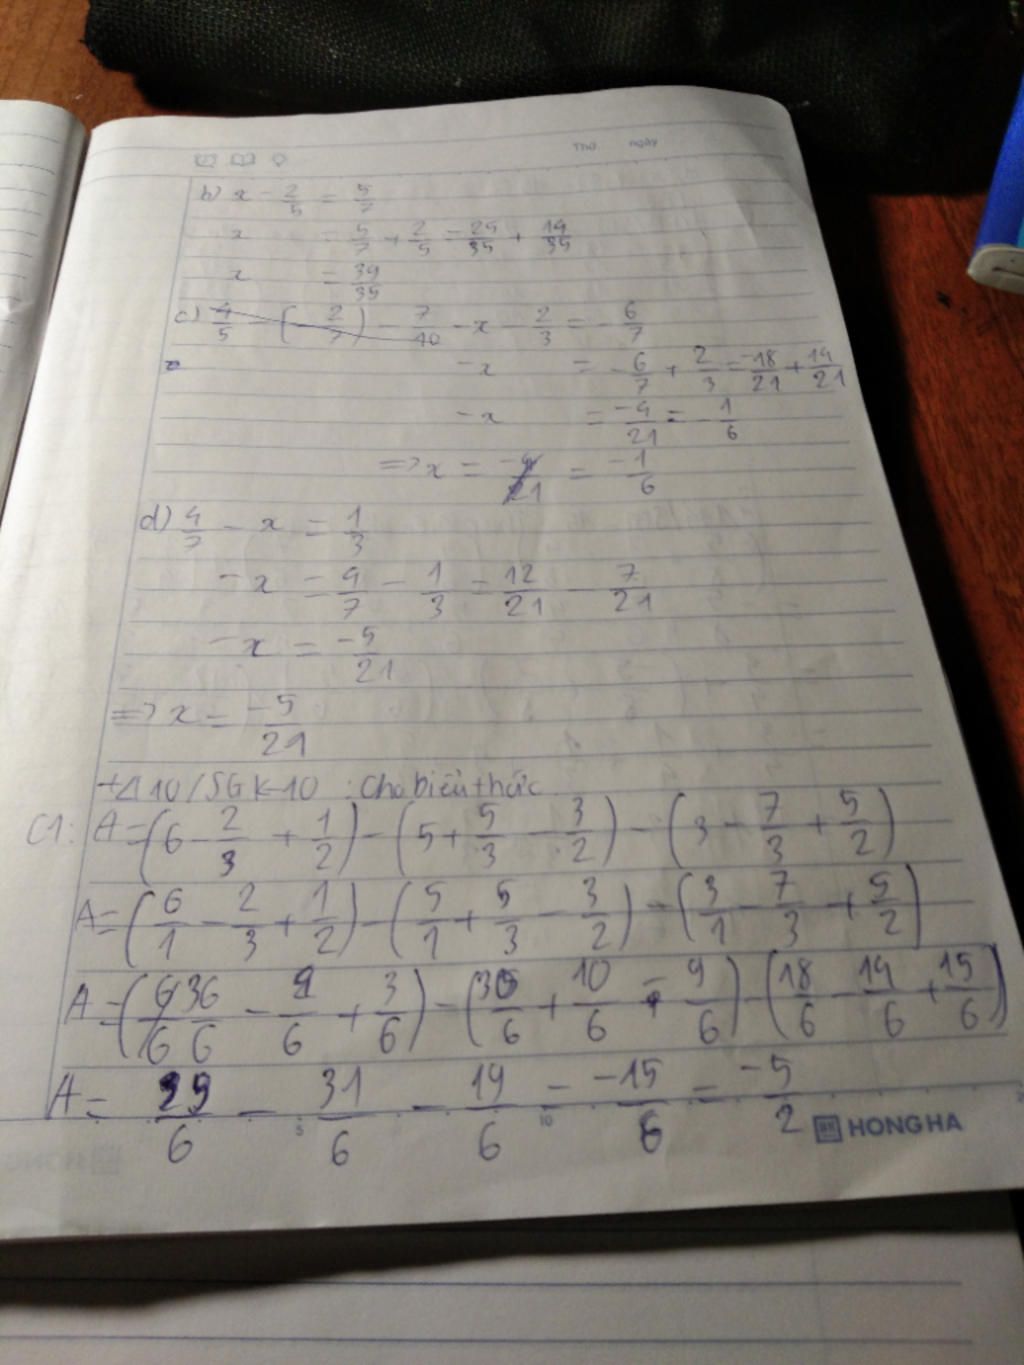 Thứ ngày
b) x - 2/5 = 5/7
x = 5/7 + 2/5 = 25/35 + 14/35
x = 39/35
c) 4/5 - (- 2/7) - 7/10 - x - 2/3 = - 6/7
- x = - 6/7 + 2/3 = -18/21 + 14/21
- x = -4/21 = - 1/6
=> x = -4/21 = -1/6
d) 4/7 - x = 1/3
- x = 4/7 - 1/3 = 12/21 - 7/21
- x = -5/21
=> x = -5/21
10/SGK-10 : Cho biểu thức
C1: A = (6 - 2/3 + 1/2) - (5 + 5/3 - 3/2) - (3 - 7/3 + 5/2)
A = (6/1 - 2/3 + 1/2) - (5/1 + 5/3 - 3/2) - (3/1 - 7/3 + 5/2)
A = (36/6 - 4/6 + 3/6) - (30/6 + 10/6 - 9/6) - (18/6 - 14/6 + 15/6)
A = 35/6 - 31/6 - 19/6 = -15/6 = -5/2
HONG HA